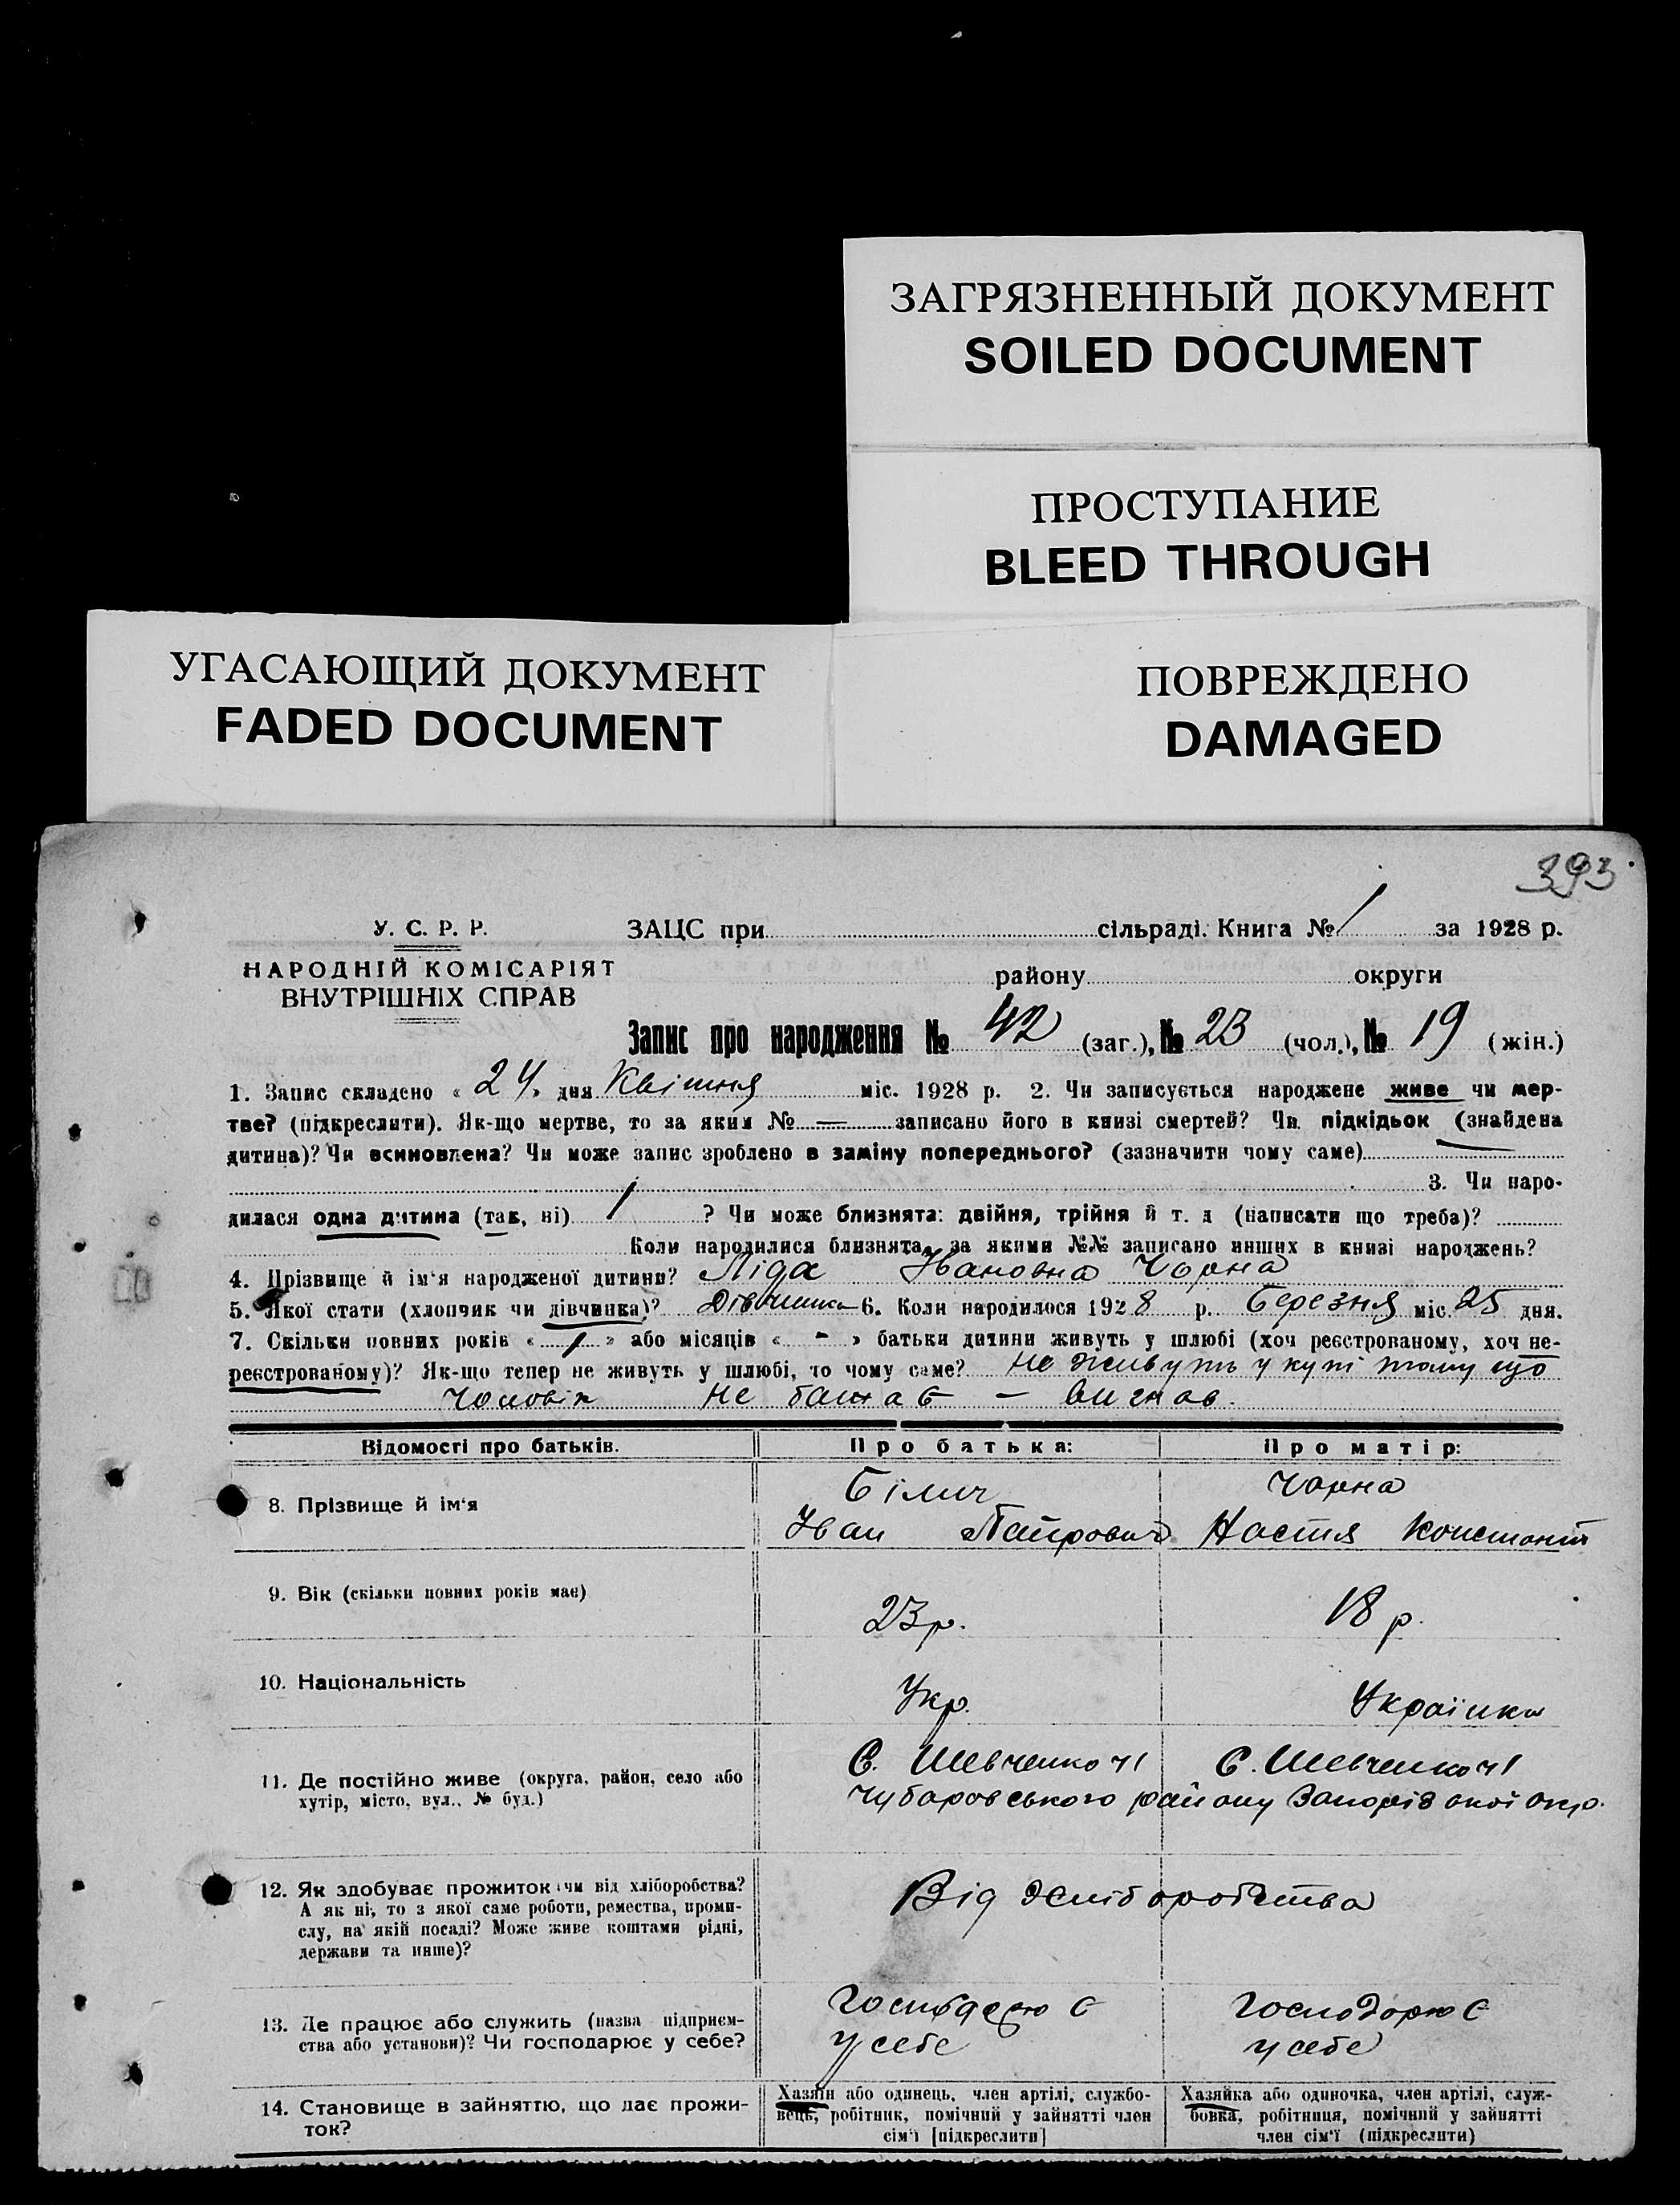 ЗАГРЯЗНЕННЫЙ ДОКУМЕНТ
SOILED DOCUMENT
ПРОСТУПАНИЕ
BLEED THROUGH
УГАСАЮЩИЙ ДОКУМЕНТ
FADED DOCUMENT
ПОВРЕЖДЕНО
DAMAGED
393
У. С. Р. Р.
НАРОДНІЙ КОМІСАРІЯТ
ВНУТРІШНІХ СПРАВ
ЗАЦС при сільраді. Книга № 1 за 1928 р.
району округи
Запис про народження № 42 (заг.), № 23 (чол.), № 19 (жін.)
1. Запис складено « 24 » дня Квітня міс. 1928 р. 2. Чи записується народжене живе чи мер-
тве? (підкреслити). Як-що мертве, то за яким № — записано його в книзі смертей? Чи підкідьок (знайдена
дитина)? Чи всиновлена? Чи може запис зроблено в заміну попереднього? (зазначити чому саме) —
3. Чи наро-
дилася одна дитина (так, ні) 1 ? Чи може близнята: двійня, трійня й т. д (написати що треба)?
Коли народилися близнята, за якими №№ записано инших в книзі народжень?
4. Прізвище й ім'я народженої дитини? Ліда Івановна Чорна
5. Якої стати (хлопчик чи дівчинка)? Дівчинка 6. Коли народилося 1928 р. Березня міс. 25 дня.
7. Скільки повних років « 1 » або місяців « - » батьки дитини живуть у шлюбі (хоч реєстрованому, хоч не-
реєстрованому)? Як-що тепер не живуть у шлюбі, то чому саме? Не живуть у купі тому що
Чоловік не бажає — вигнав.
Відомості про батьків. Про батька: Про матір:
8. Прізвище й ім'я
Білич
Іван
Чорна
Настя Констант
9. Вік (скільки повних років має)
23 р.
18 р.
10. Національність
Укр.
Українка
11. Де постійно живе (округа, район, село або
хутір, місто, вул., № буд.)
С. Шевченко ч1 С. Шевченко ч1
Чубаровського району Запорізької окр.
12. Як здобуває прожиток (чи від хліборобства?
А як ні, то з якої саме роботи, ремества, проми-
слу, на якій посаді? Може живе коштами рідні,
держави та инше)?
Від хліборобства
13. Де працює або служить (назва підприєм-
ства або установи)? Чи господарює у себе?
Господарює
у себе
Господарює
у себе
14. Становище в зайняттю, що дає прожи-
ток?
Хазяїн або одинець, член артілі, службо-
вець, робітник, помічний у зайнятті член
сім'ї [підкреслити]
Хазяйка або одиночка, член артілі, служ-
бовка, робітниця, помічний у зайнятті
член сім'ї (підкреслити)